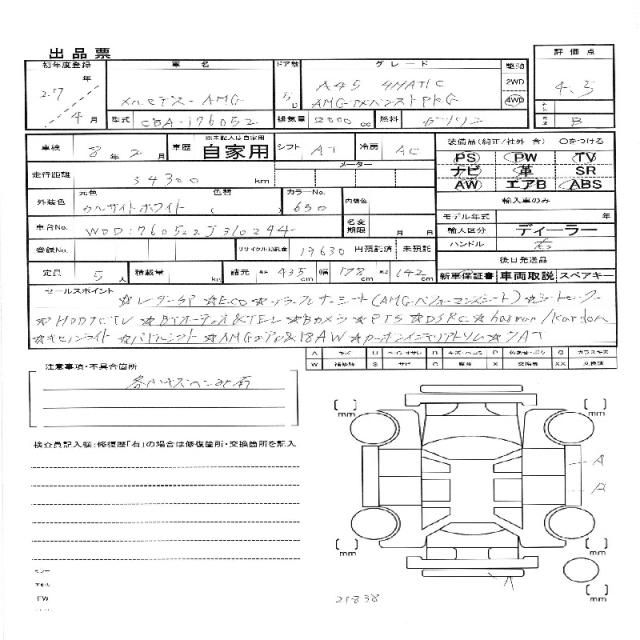 出品票
初年度登録 車名 ドア数 グレード 駆動 評価点
27年 4月
メルセデス-AMG 5D A45 4MATIC 2WD 4WD 4.5
AMGアドバンストPKG
型式 CBA-176052 排気量 2000cc 燃料 ガソリン B
車検 8年2月 車歴 自家用 シフト AT 冷房 AC 装備品(純正/社外 含) Oをつける
走行距離 34300km メーター PS PW TV
ナビ 革 SR
AW エアB ABS
外装色 元色 カルサイトホワイト 色替( ) カラーNo. 650 内装色
輸入車のみ
モデル年式 年
車台No. WDD1760522J310244 名変期限 月 日 輸入区分 ディーラー
登録No. リサイクル預託金 17630円 預託済 未預託 ハンドル 右
後日発送品
定員 5人 積載量 kg 諸元 長さ 435cm 幅 178cm 高さ 142cm 新車保証書 車両取説 スペアキー
セールスポイント
☆レーダーSP ☆ECO ☆トラフルナーミート(AMGパフォーマンスシート) ☆シートヒーター
☆HDDナビTV ☆BTオーディオ&TEL ☆Bカメラ ☆PTS ☆DSRC ☆harman/kardon
☆キセノンライト ☆パドルシフト ☆AMGエアロ&18AW ☆カーボンインテリアトリム ☆7AT
A キズ U ヘコミ B キズ・ヘコミ P G ガラスキズ
W S サビ C 腐食 X XX 交換済
注意事項・不具合箇所
各小キズヘコミ有
検査員記入欄:修復歴「有」の場合は修復箇所・交換箇所を記入
mm mm
A
A
mm mm
A
mm
21838